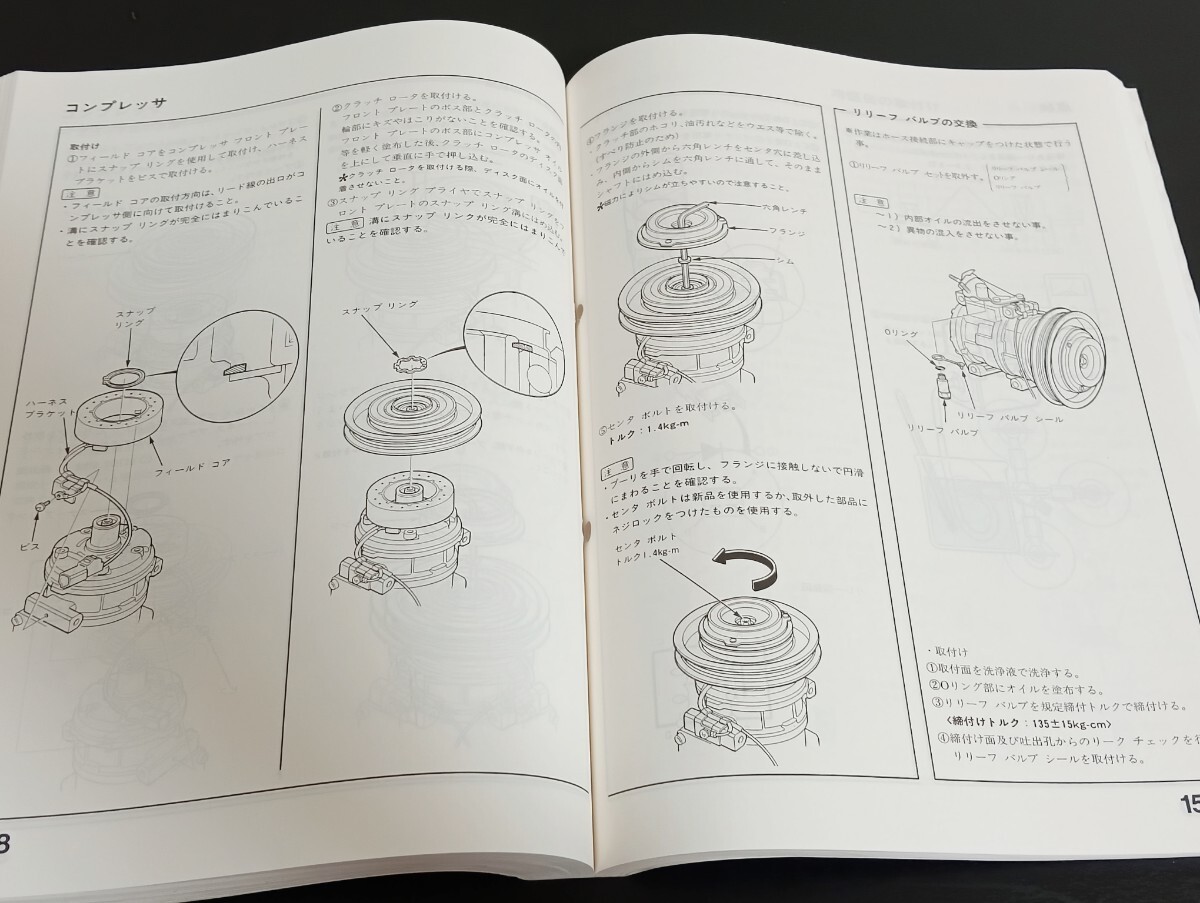 コンプレッサ
取付け
①フィールド コアをコンプレッサ フロント プレー
トにスナップ リングを使用して取付け、ハーネス
ブラケットをビスで取付ける。
注 意
・フィールド コアの取付方向は、リード線の出口がコ
ンプレッサ側に向けて取付けること。
・溝にスナップ リングが完全にはまりこんでいるこ
とを確認する。
スナップ
リング
ハーネス
ブラケット
フィールド コア
ビス
②クラッチ ロータを取付ける。
フロント プレートのボス部とクラッチ ロータの内
輪部にキズやほこりがないことを確認する。
フロント プレートのボス部にコンプレッサ オイル
等を軽く塗布した後、クラッチ ロータのディスク面
を上にして垂直に手で押し込む。
＊クラッチ ロータを取付ける際、ディスク面にオイルを付
着させないこと。
③スナップ リング プライヤでスナップ リングをフ
ロント プレートのスナップ リング溝にはめ込む。
注 意 溝にスナップ リンクが完全にはまりこんで
いることを確認する。
スナップ リング
④フランジを取付ける。
クラッチ部のホコリ、油汚れなどをウエス等で除く。
(すべり防止のため)
フランジの外側から六角レンチをセンタ穴に差し込
み、内側からシムを六角レンチに通して、そのまま
シャフトにはめ込む。
＊磁力によりシムが立ちやすいので注意すること。
六角レンチ
フランジ
シム
⑤センタ ボルトを取付ける。
トルク：1.4kg-m
注 意
・プーリを手で回転し、フランジに接触しないで円滑
にまわることを確認する。
・センタ ボルトは新品を使用するか、取外した部品に
ネジロックをつけたものを使用する。
センタ ボルト
トルク1.4kg-m
リリーフ バルブの交換
＊作業はホース接続部にキャップをつけた状態で行う
事。
①リリーフ バルブ セットを取外す。
リリーフ バルブ シール
Oリング
リリーフ バルブ
注 意
〜1）内部オイルの流出をさせない事。
〜2）異物の混入をさせない事。
Oリング
リリーフ バルブ シール
リリーフ バルブ
・取付け
①取付面を洗浄液で洗浄する。
②Oリング部にオイルを塗布する。
③リリーフ バルブを規定締付トルクで締付ける。
〈締付けトルク：135±15kg-cm〉
④締付け面及び吐出孔からのリーク チェックを行
リリーフ バルブ シールを取付ける。
8
15